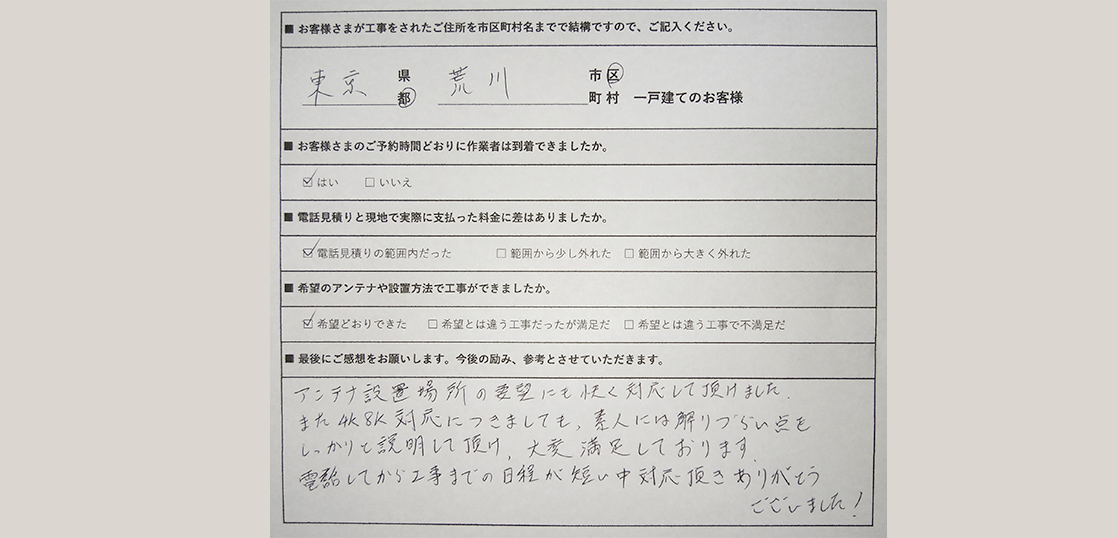 ■ お客様さまが工事をされたご住所を市区町村名までで結構ですので、ご記入ください。
東京 県 荒川 市 区
都 町 村 一戸建てのお客様
■ お客様さまのご予約時間どおりに作業者は到着できましたか。
☑ はい □ いいえ
■ 電話見積りと現地で実際に支払った料金に差はありましたか。
☑ 電話見積りの範囲内だった □ 範囲から少し外れた □ 範囲から大きく外れた
■ 希望のアンテナや設置方法で工事ができましたか。
☑ 希望どおりできた □ 希望とは違う工事だったが満足だ □ 希望とは違う工事で不満足だ
■ 最後にご感想をお願いします。今後の励み、参考とさせていただきます。
アンテナ設置場所の要望にも快く対応して頂けました.
また4K8K対応につきましても、素人には解りづらい点を
しっかりと説明して頂け、大変満足しております.
電話してから工事までの日程が短い中対応頂きありがとう
ございました!